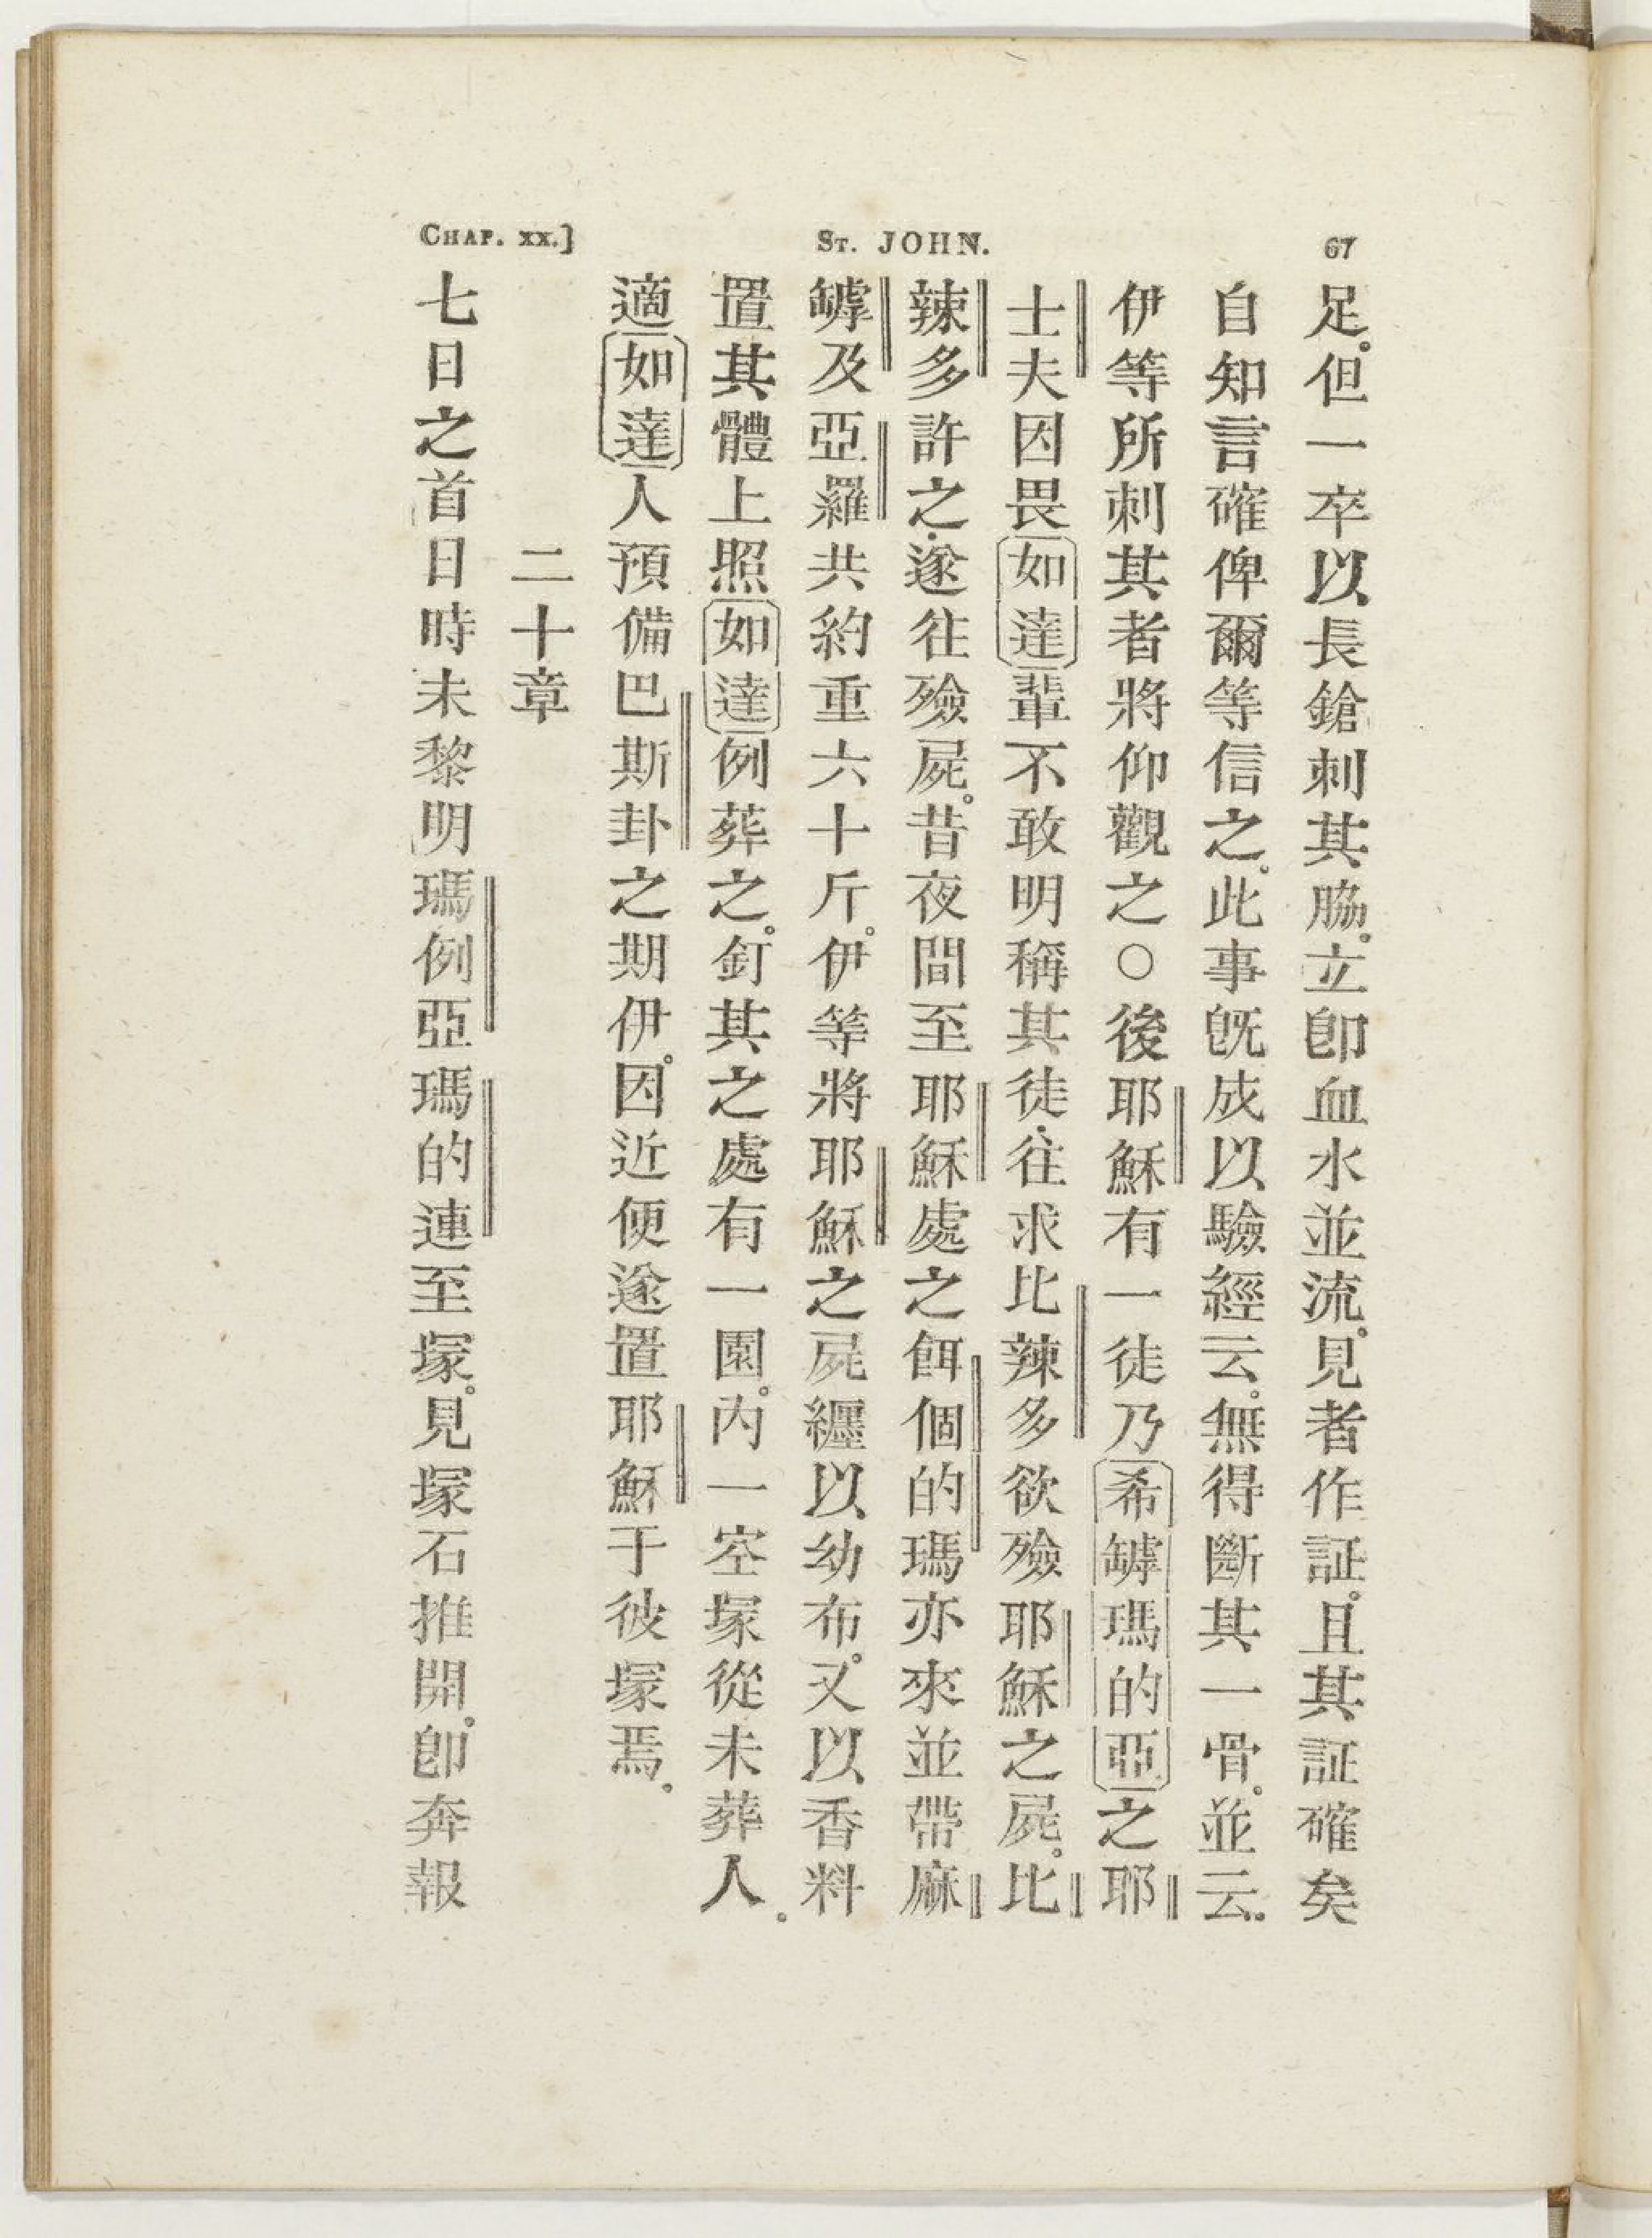 CHAP. XX.]
ST. JOHN.
67
足。但一卒以長鎗刺其脇。立卽血水並流。見者作証。且其証確矣
自知言確俾爾等信之。此事旣成以驗經云。無得斷其一骨。並云。
伊等所刺其者將仰觀之○後耶穌有一徒乃希罅瑪的亞之耶
士夫因畏如達輩不敢明稱其徒。往求比辣多欲殮耶穌之屍。比
辣多許之。遂往殮屍。昔夜間至耶穌處之餌個的瑪亦來並帶麻
罅及亞羅共約重六十斤。伊等將耶穌之屍纏以幼布。又以香料
置其體上照如達例葬之。釘其之處有一園。內一空塚從未葬人。
適如達人預備巴斯卦之期伊。因近便遂置耶穌于彼塚焉。
二十章
七日之首日時未黎明瑪例亞瑪的連至塚。見塚石推開。卽奔報